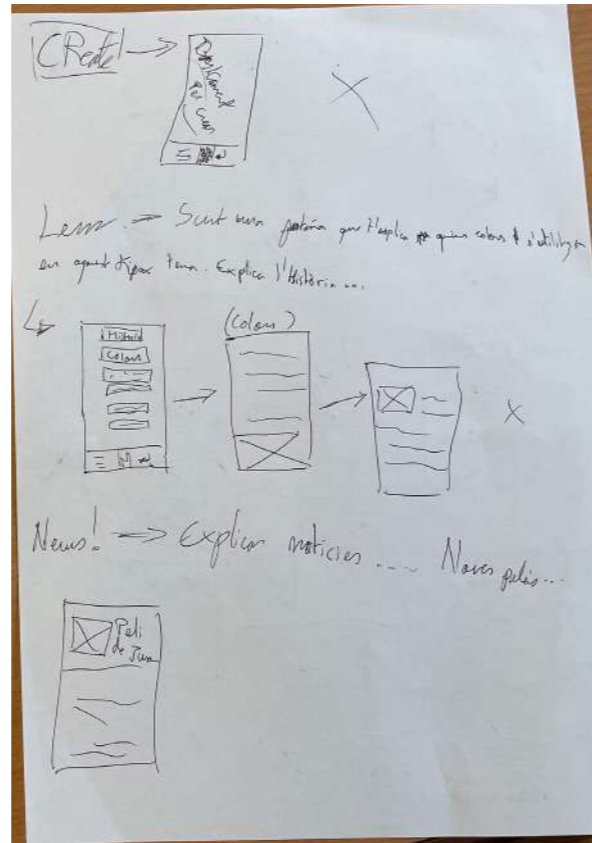 CReate
per crear
Learn
que t'explica quins colors s'utilitzen
en aquest tipus Explica l'història...
Història
Colors
(Colors)
News! Explicar noticies .... Noves pelis...
Peli
de